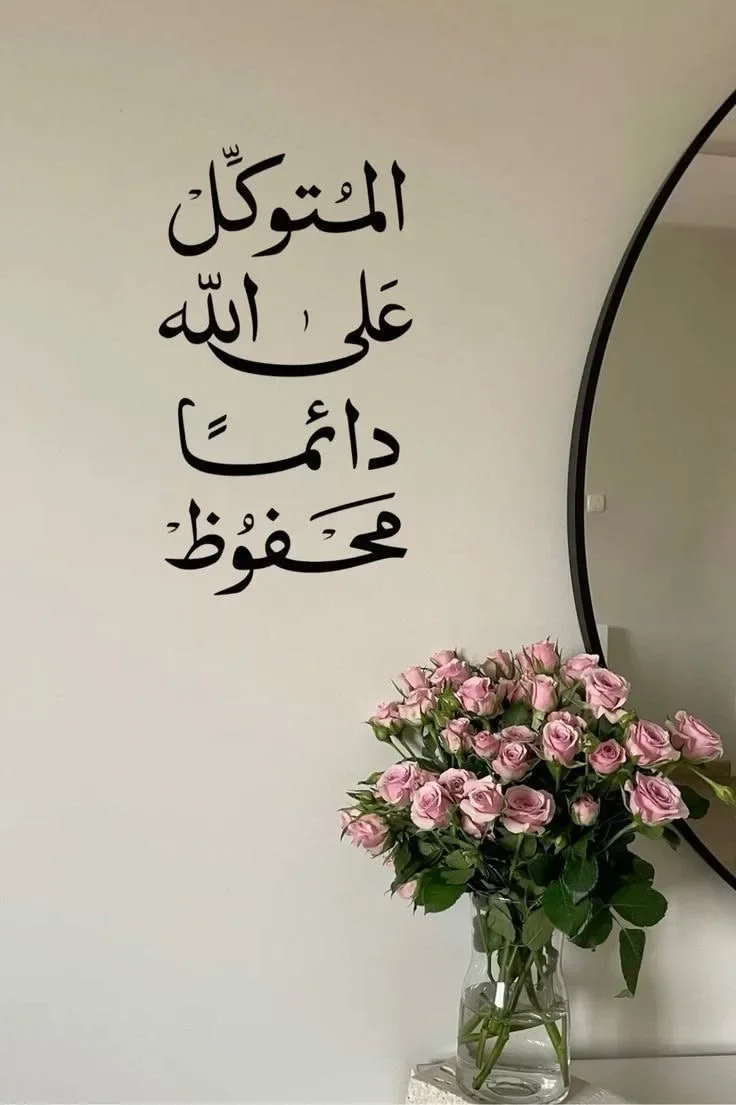 المُتوكِّل
عَلى اللّه
دائمًا
مَحفُوظ